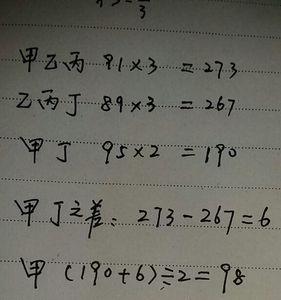 甲乙丙 91×3 =273
乙丙丁 89×3 =267
甲丁 95×2 =190
甲丁之差: 273-267=6
甲 (190+6)÷2=98